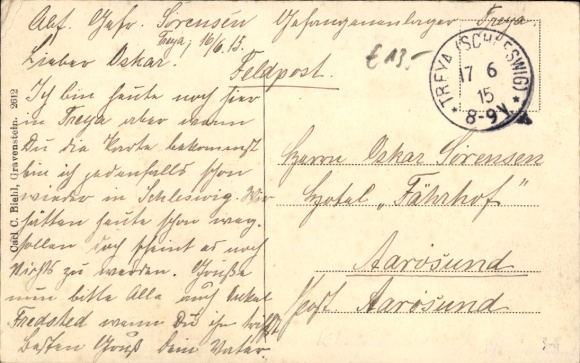 Abs. Gefr. Sörensen Gefangenenlager Treya.
Treya, 16/6.15.
Lieber Oskar.
Feldpost.
€ 13.-
TREYA (SCHLESWIG)
17 6
15
* 8-9V. *
Ich bin heute noch hier
in Treya aber wenn
Du die Karte bekommst
bin ich jedenfalls schon
wieder in Schleswig. Wir
hätten heute schon weg
sollen doch scheint es noch
Nichts zu werden. Grüße
nun bitte Alle auch Onkel
Fredsted wenn Du ihn triffst
Besten Gruß Dein Vater.
Herrn Oskar Sörensen
Hotel „Fährhof"
Aarösund
Post Aarösund
Carl C. Biehl, Gravenstein. 2612